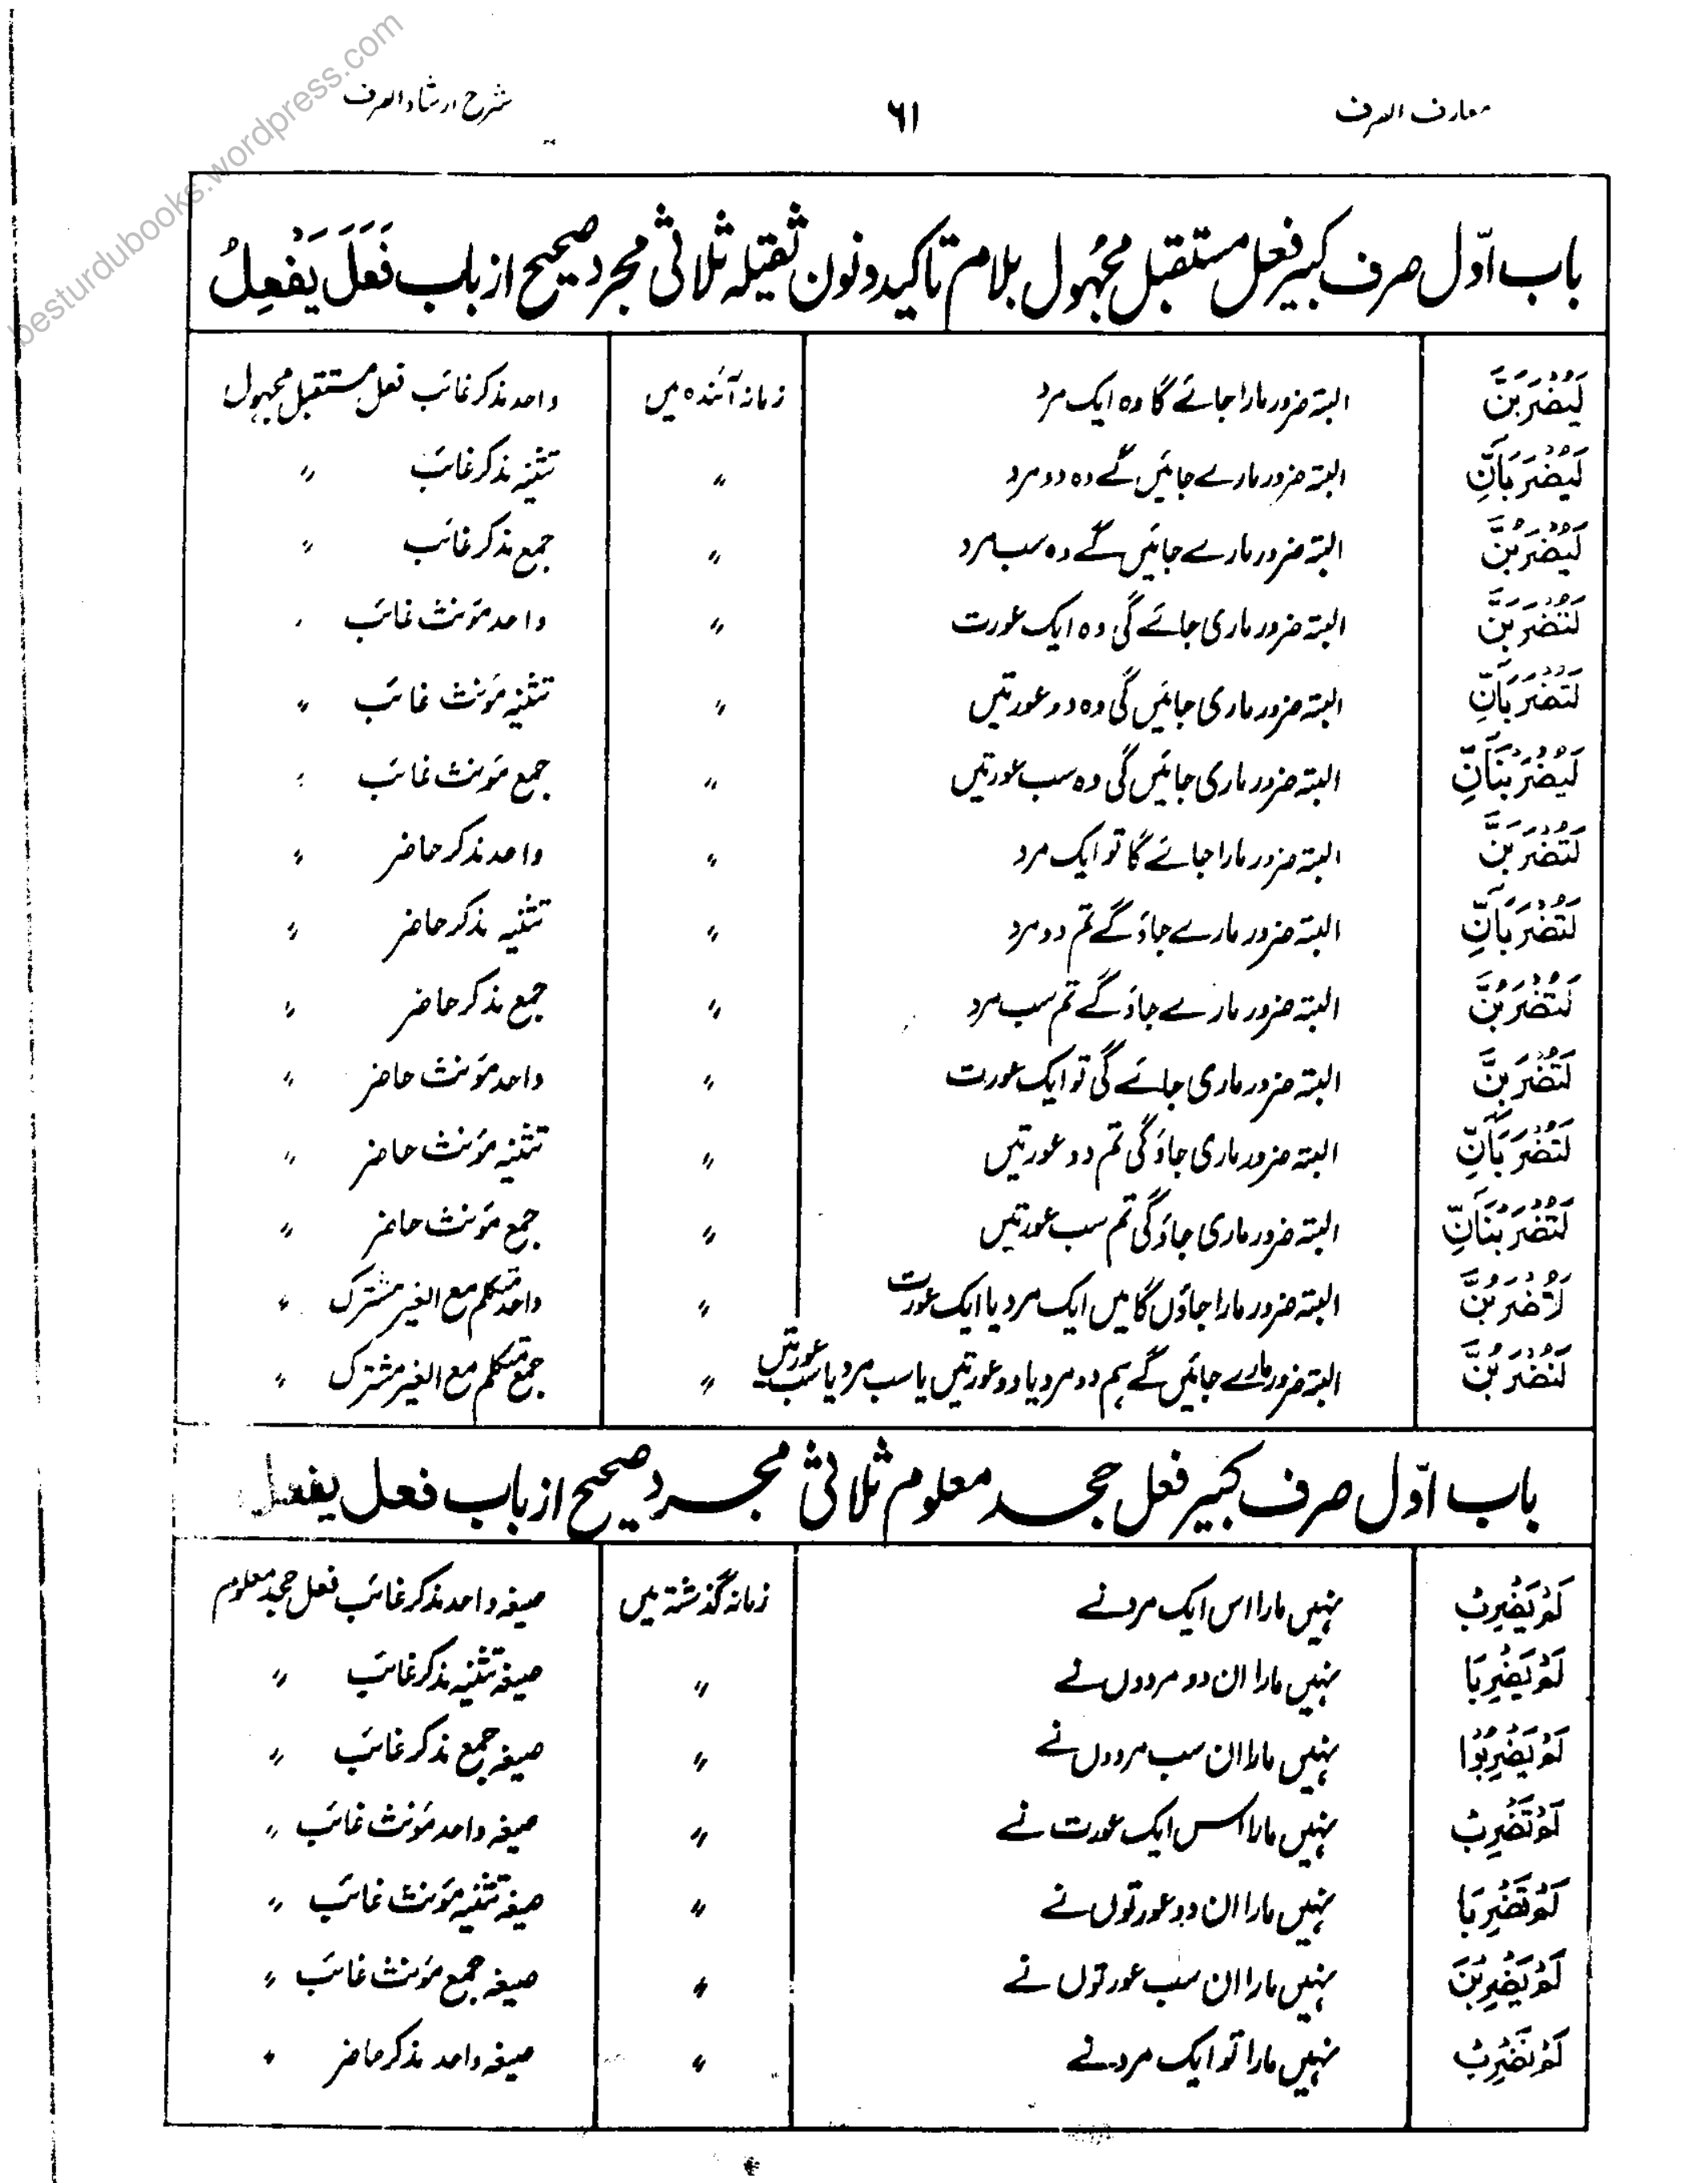 معارف الصرف ۶۱ شرح ارشاد الصرف
besturdubooks.wordpress.com
باب اوّل صرف کبیر فعل مستقبل مجہُول بلام تاکید و نون ثقیلہ ثلاثی مجرد صحیح از باب فَعَلَ یَفْعِلُ
لَيُضْرَبَنَّ البتہ ضرور مارا جائے گا وہ ایک مرد زمانہ آئندہ میں واحد مذکر غائب فعل مستقبل مجہول
لَيُضْرَبَانِّ البتہ ضرور مارے جائیں گے وہ دو مرد 〃 تثنیہ مذکر غائب 〃
لَيُضْرَبُنَّ البتہ ضرور مارے جائیں گے وہ سب مرد 〃 جمع مذکر غائب 〃
لَتُضْرَبَنَّ البتہ ضرور ماری جائے گی وہ ایک عورت 〃 واحد مؤنث غائب 〃
لَتُضْرَبَانِّ البتہ ضرور ماری جائیں گی وہ دو عورتیں 〃 تثنیہ مؤنث غائب 〃
لَيُضْرَبْنَانِّ البتہ ضرور ماری جائیں گی وہ سب عورتیں 〃 جمع مؤنث غائب 〃
لَتُضْرَبَنَّ البتہ ضرور مارا جائے گا تو ایک مرد 〃 واحد مذکر حاضر 〃
لَتُضْرَبَانِّ البتہ ضرور مارے جاؤ گے تم دو مرد 〃 تثنیہ مذکر حاضر 〃
لَتُضْرَبُنَّ البتہ ضرور مارے جاؤ گے تم سب مرد 〃 جمع مذکر حاضر 〃
لَتُضْرَبِنَّ البتہ ضرور ماری جائے گی تو ایک عورت 〃 واحد مؤنث حاضر 〃
لَتُضْرَبَانِّ البتہ ضرور ماری جاؤ گی تم دو عورتیں 〃 تثنیہ مؤنث حاضر 〃
لَتُضْرَبْنَانِّ البتہ ضرور ماری جاؤ گی تم سب عورتیں 〃 جمع مؤنث حاضر 〃
لَاُضْرَبَنَّ البتہ ضرور مارا جاؤں گا میں ایک مرد یا ایک عورت 〃 واحد متکلم مع الغیر مشترک 〃
لَنُضْرَبَنَّ البتہ ضرور مارے جائیں گے ہم دو مرد یا دو عورتیں یا سب مرد یا سب عورتیں 〃 جمع متکلم مع الغیر مشترک 〃
باب اوّل صرف کبیر فعل جحد معلوم ثلاثی مجرد صحیح از باب فعل یفعل
لَمْ يَضْرِبْ نہیں مارا اس ایک مرد نے زمانہ گذشتہ میں صیغہ واحد مذکر غائب فعل جحد معلوم
لَمْ يَضْرِبَا نہیں مارا ان دو مردوں نے 〃 صیغہ تثنیہ مذکر غائب 〃
لَمْ يَضْرِبُوْا نہیں مارا ان سب مردوں نے 〃 صیغہ جمع مذکر غائب 〃
لَمْ تَضْرِبْ نہیں مارا اس ایک عورت نے 〃 صیغہ واحد مؤنث غائب 〃
لَمْ تَضْرِبَا نہیں مارا ان دو عورتوں نے 〃 صیغہ تثنیہ مؤنث غائب 〃
لَمْ يَضْرِبْنَ نہیں مارا ان سب عورتوں نے 〃 صیغہ جمع مؤنث غائب 〃
لَمْ تَضْرِبْ نہیں مارا تو ایک مرد نے 〃 صیغہ واحد مذکر حاضر 〃